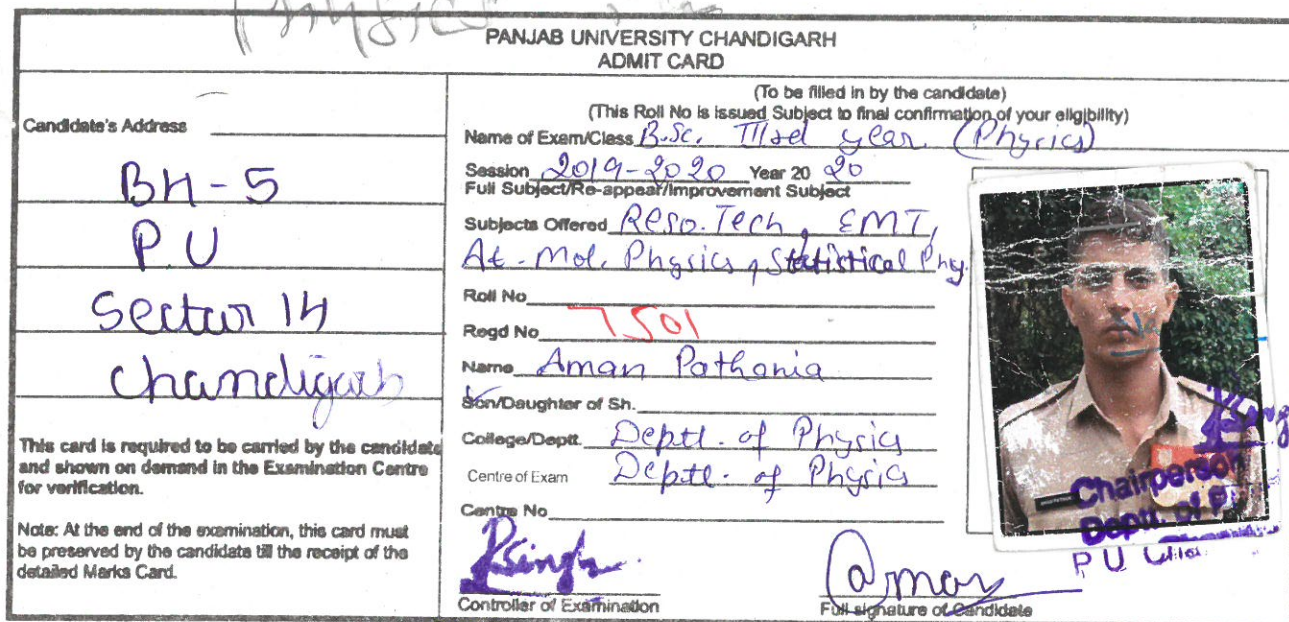 Physics
PANJAB UNIVERSITY CHANDIGARH
ADMIT CARD
Candidate's Address
BH-5
P.U
Sector 14
Chandigarh
This card is required to be carried by the candidate
and shown on demand in the Examination Centre
for verification.
Note: At the end of the examination, this card must
be preserved by the candidate till the receipt of the
detailed Marks Card.
(To be filled in by the candidate)
(This Roll No is issued Subject to final confirmation of your eligibility)
Name of Exam/Class B.Sc. IIIrd year (Physics)
Session 2019-2020 Year 20 20
Full Subject/Re-appear/Improvement Subject
Subjects Offered Reso. Tech, EMT,
At-Mol. Physics, Statistical Phy.
Roll No
Regd No 7501
Name Aman Pathania
Son/Daughter of Sh.
College/Deptt. Deptt. of Physics
Centre of Exam Deptt. of Physics
Centre No
PSingh
Controller of Examination
Aman
Full signature of Candidate
Chairperson
Deptt. of
P U